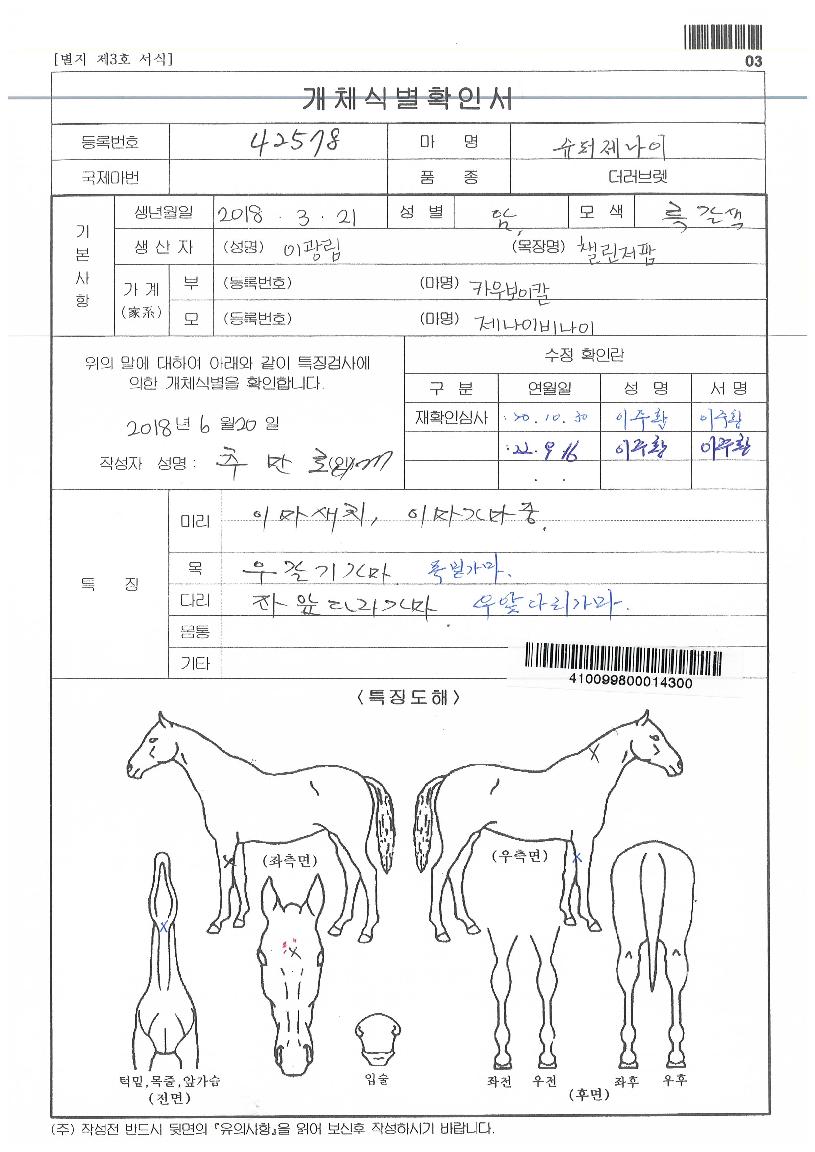 03
[별지 제3호 서식]
개체식별확인서
등록번호 42578 마 명 슈퍼제나이
국제마번 품 종 더러브렛
기본사항
생년월일 2018 . 3 . 21 성 별 암 모 색 흑갈색
생 산 자 (성명) 이광림 (목장명) 챌린저팜
가 계 (家系) 부 (등록번호) (마명) 카우보이칼
모 (등록번호) (마명) 제나이비나이
위의 말에 대하여 아래와 같이 특징검사에
의한 개체식별을 확인합니다.
2018 년 6 월 20 일
작성자 성명 : 추 만 호 (인)
수정 확인란
구 분 연월일 성 명 서 명
재확인심사 '20 . 10 . 30 이주황 이주황
'22 . 9 16 이주황 이주황
. .
특 징
머리 이마새치, 이마가마중.
목 우갈기가마 목밑가마.
다리 좌앞다리가마 우앞다리가마.
몸통
기타
410099800014300
<특징도해>
(좌측면) (우측면)
턱밑,목줄,앞가슴
(전면)
입술
좌전 우전 좌후 우후
(후면)
(주) 작성전 반드시 뒷면의 『유의사항』을 읽어 보신후 작성하시기 바랍니다.